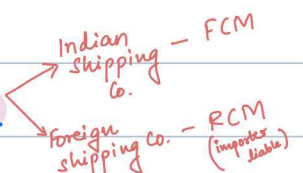 Indian
shipping - FCM
Co.
Foreign
shipping Co. - RCM
(importer
liable)